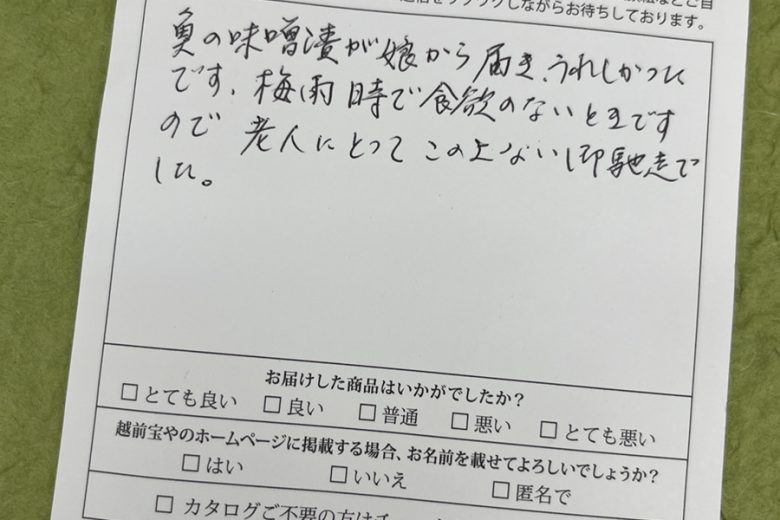 返信をワクワクしながらお待ちしております。
魚の味噌漬が娘から届き、うれしかった
です、梅雨時で食欲のないときです
ので 老人にとって この上ない御馳走で
した。
お届けした商品はいかがでしたか?
□ とても良い □ 良い □ 普通 □ 悪い □ とても悪い
越前宝やのホームページに掲載する場合、お名前を載せてよろしいでしょうか?
□ はい □ いいえ □ 匿名で
□ カタログご不要の方は